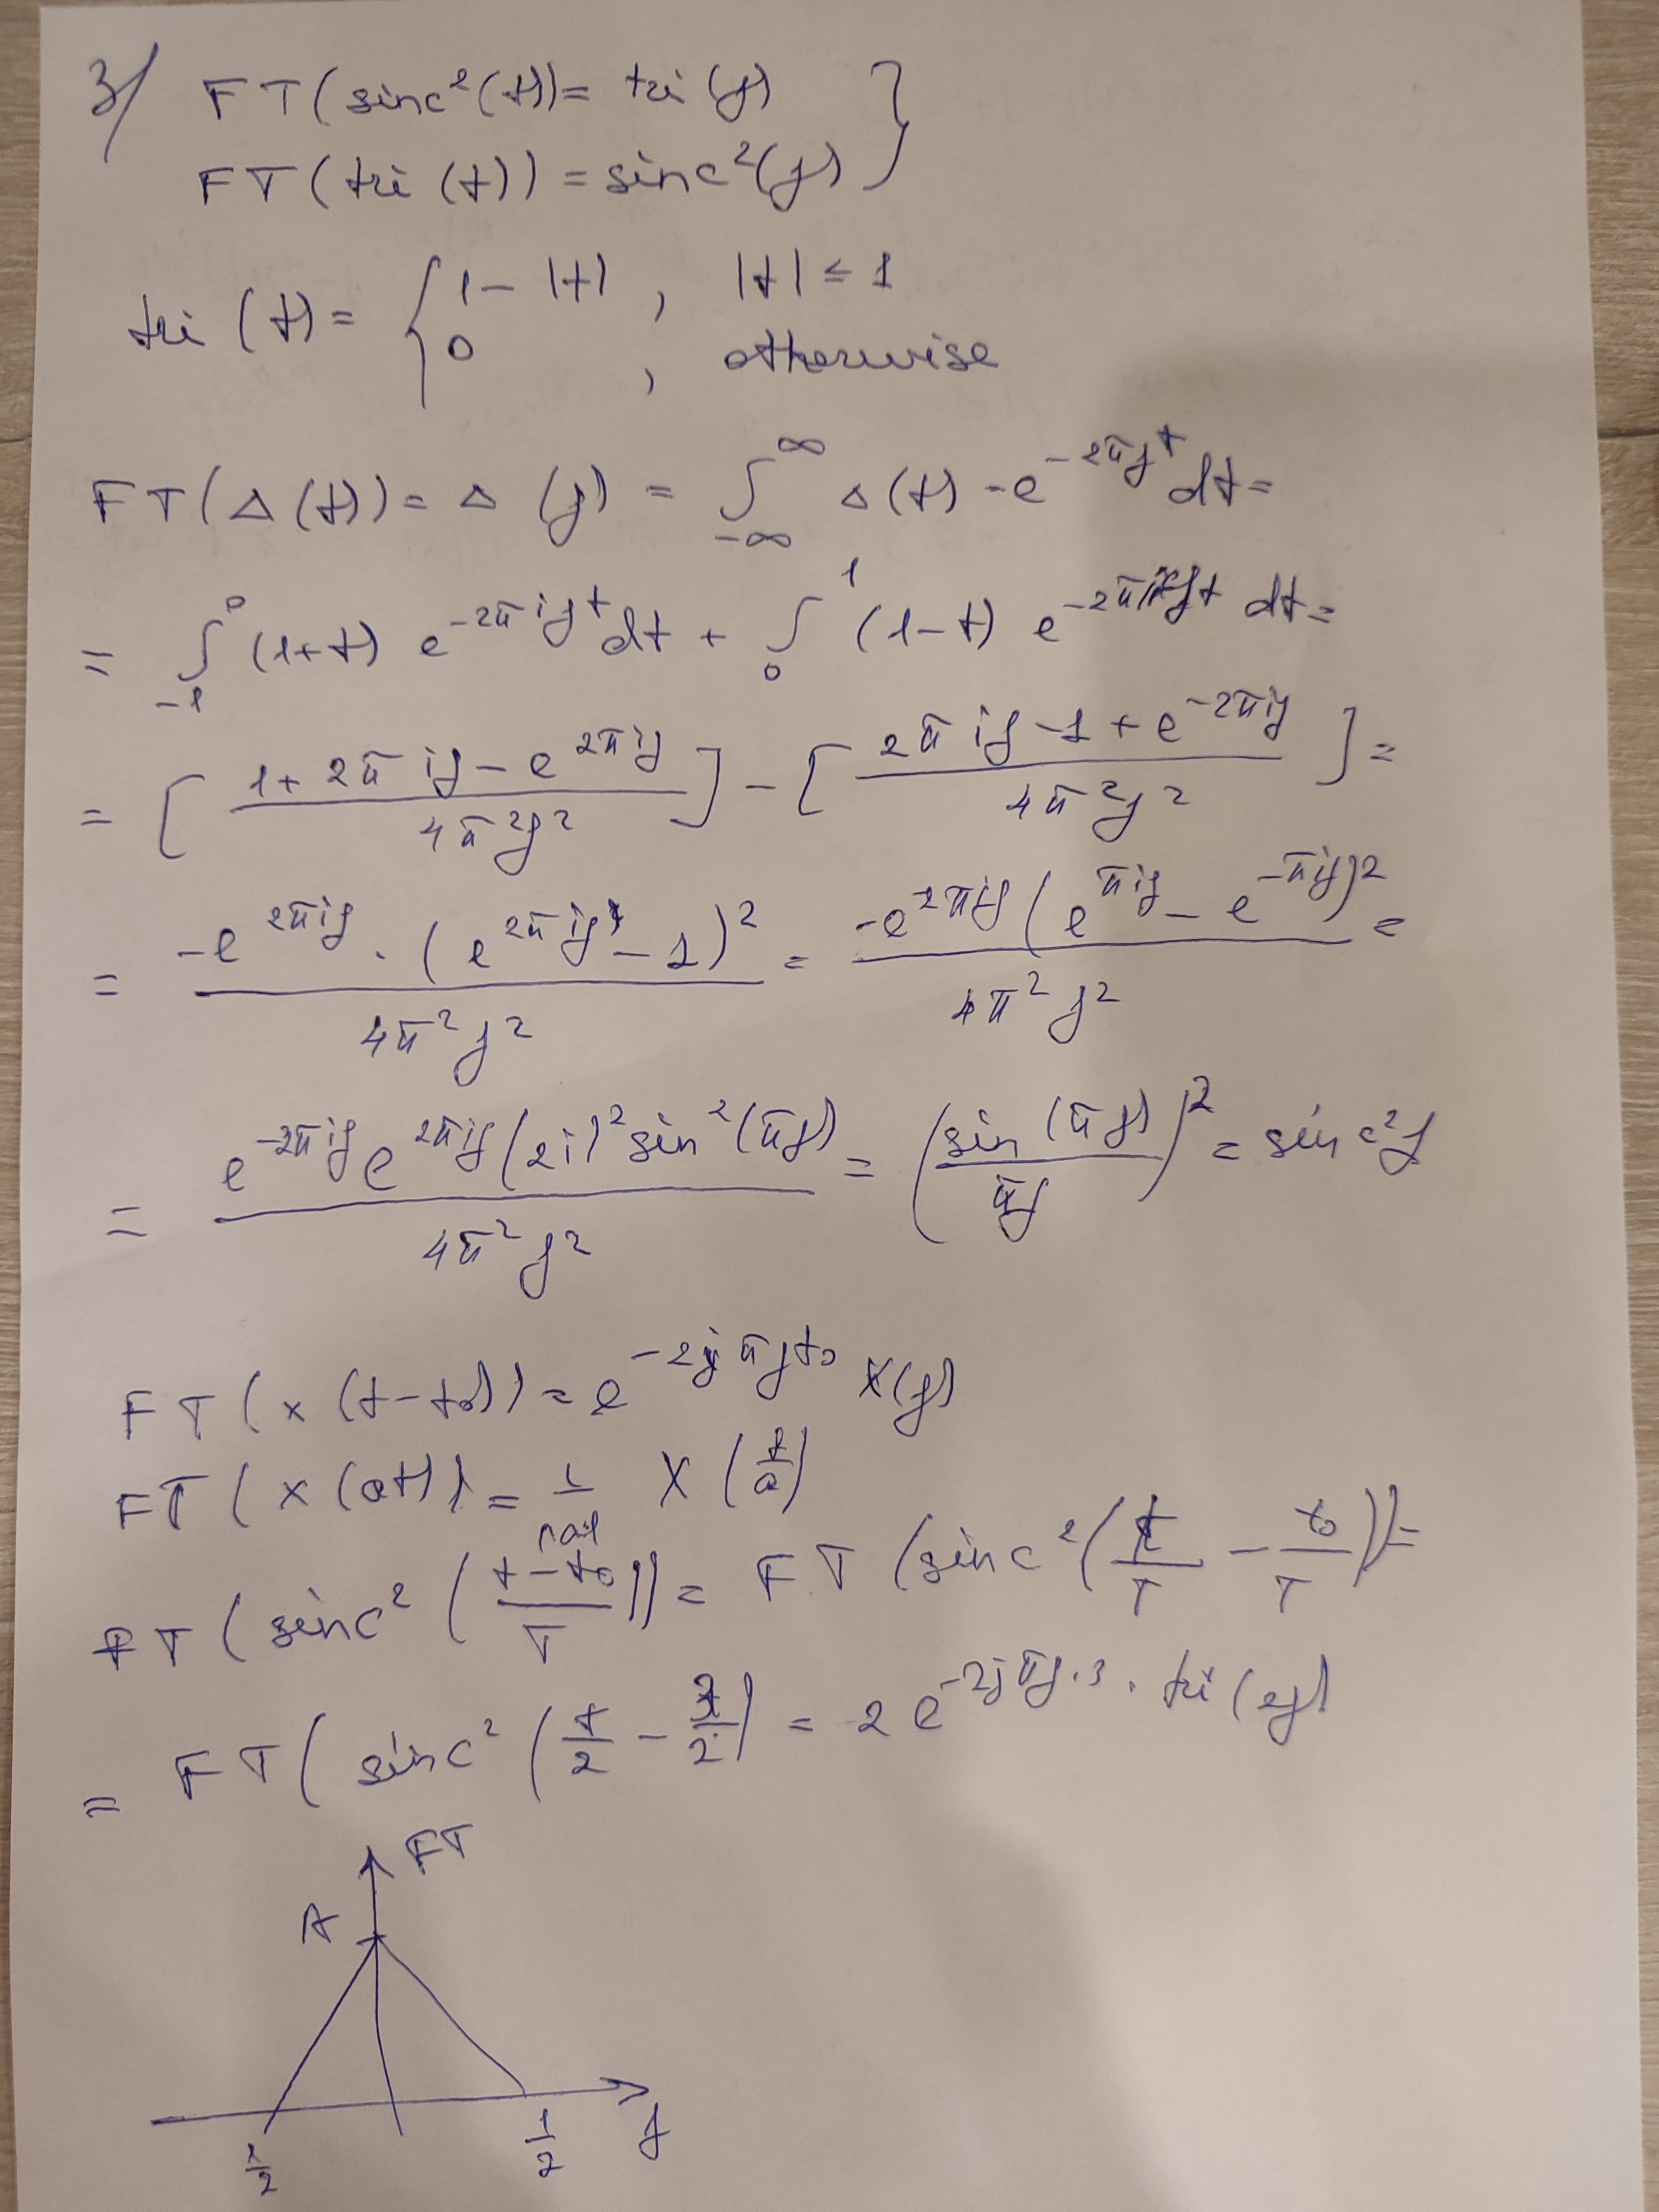 3/ FT(sinc²(t)) = tri(f) }
FT(tri(t)) = sinc²(f) }
tri(t) = { 1 - |t| , |t| ≤ 1
0 , otherwise
FT(Δ(t)) = Δ(f) = ∫_{-∞}^{∞} Δ(t) · e^{-2πft} dt =
= ∫_{-1}^{0} (1+t) e^{-2πift} dt + ∫_{0}^{1} (1-t) e^{-2πift} dt =
= [ (1 + 2πif - e^{2πif}) / (4π²f²) ] - [ (2πif - 1 + e^{-2πif}) / (4π²f²) ] =
= (-e^{2πif} · (e^{2πif} - 1)²) / (4π²f²) = (-e^{2πif} (e^{πif} - e^{-πif})²) / (4π²f²) =
= (e^{-2πif} e^{2πif} (2i)² sin²(πf)) / (4π²f²) = (sin(πf) / πf)² = sinc²f
FT(x(t-t₀)) = e^{-2jπft₀} X(f)
FT(x(at)) = 1/|a| X(f/a)
FT(sinc²((t-t₀)/T)) = FT(sinc²(t/T - t₀/T)) =
= FT(sinc²(t/2 - /2) = 2 e^{-2jπf·3} · tri(2f)
FT
A
1/2 1/2 f